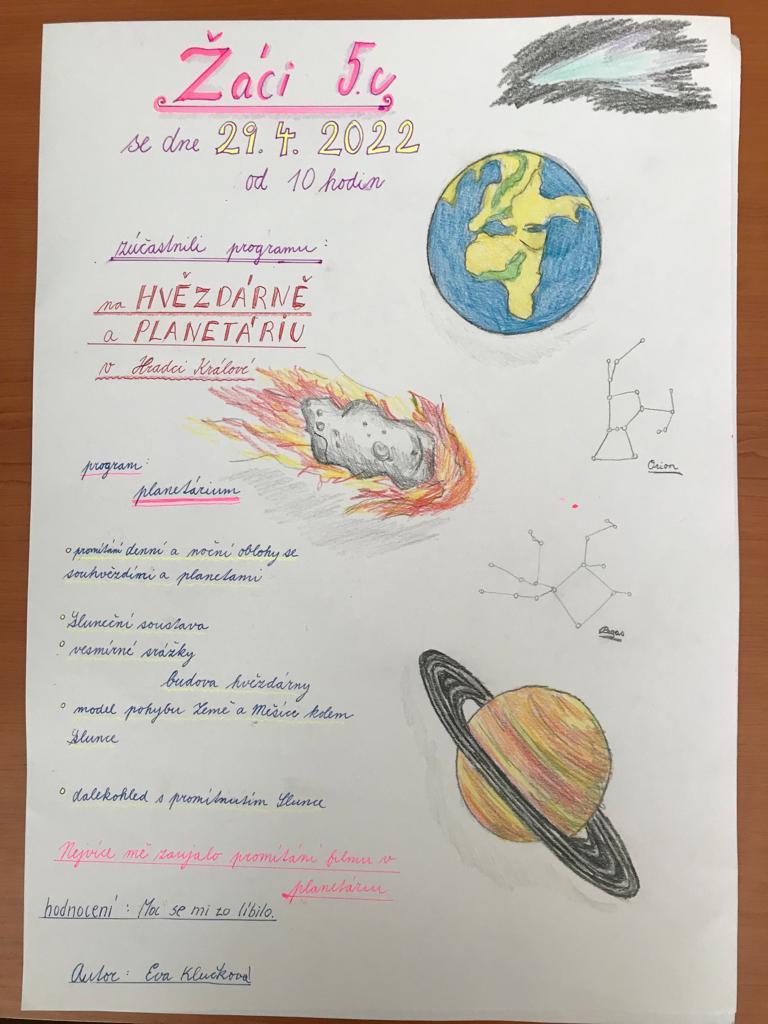 Žáci 5.c
se dne 29. 4. 2022
od 10 hodin
zúčastnili programu:
na HVĚZDÁRNĚ
a PLANETÁRIU
v Hradci Králové
program:
planetárium
promítání denní a noční oblohy se
souhvězdími a planetami
Sluneční soustava
vesmírné srážky
budova hvězdárny
model pohybu Země a Měsíce kolem
Slunce
dalekohled s promítnutím Slunce
Nejvíce mě zaujalo promítání filmu v
planetáriu
hodnocení: Moc se mi to líbilo.
Autor: Eva Klučková
Orion
Pegas